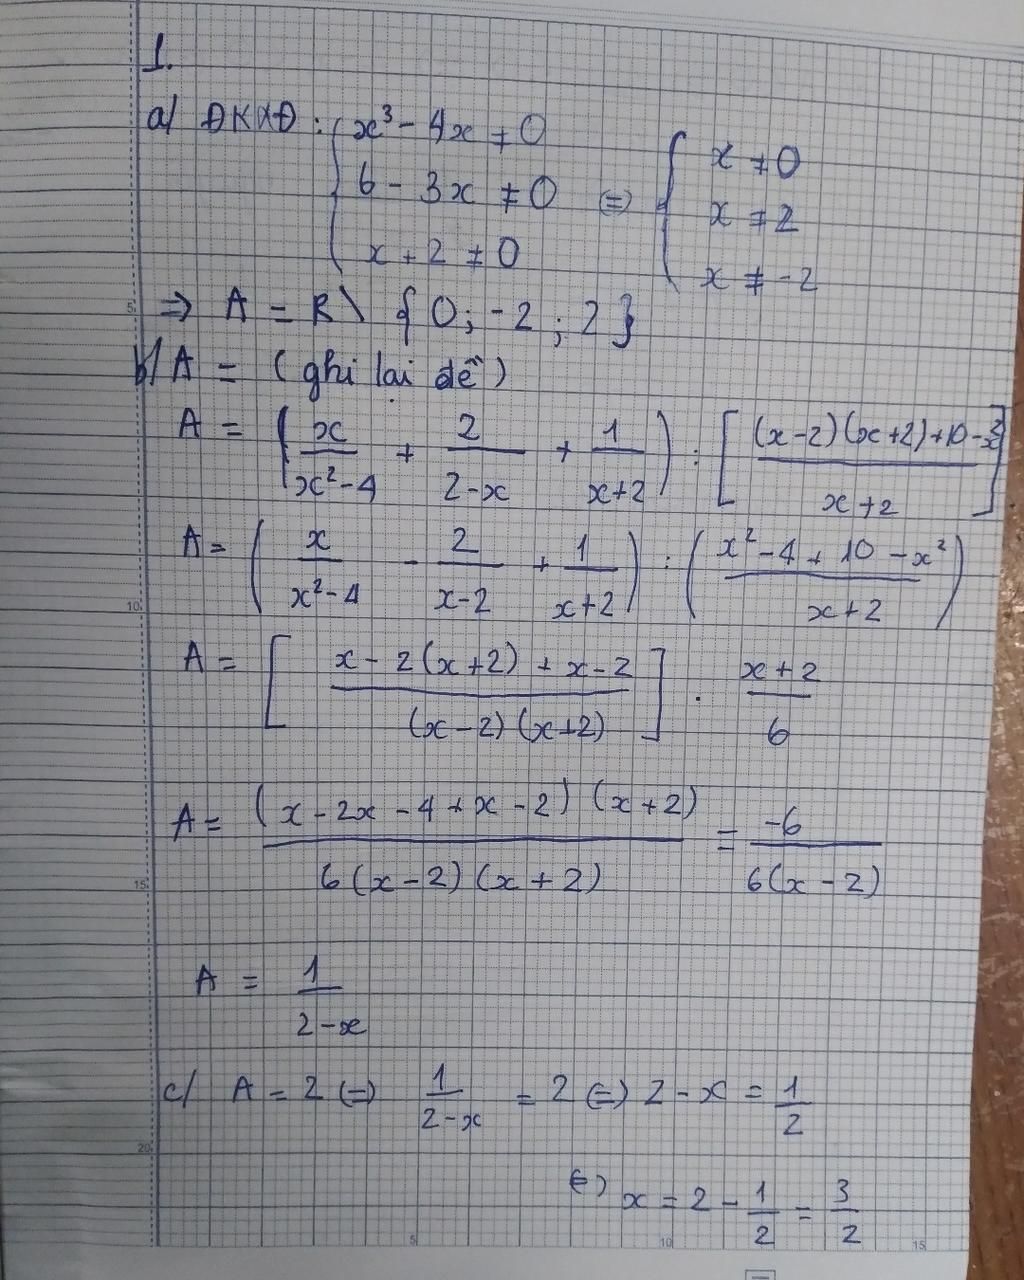 1.
a/ ĐKXĐ: { x³ - 4x ≠ 0
6 - 3x ≠ 0
x + 2 ≠ 0 ⇔ { x ≠ 0
x ≠ 2
x ≠ -2
⇒ A = R \ { 0; -2 ; 2 }
b/ A = ( ghi lại đề )
A = ( x/(x²-4) + 2/(2-x) + 1/(x+2) ) : [ ((x-2)(x+2)+10-x²)/(x+2) ]
A = ( x/(x²-4) - 2/(x-2) + 1/(x+2) ) : ( (x²-4+10-x²)/(x+2) )
A = [ (x - 2(x+2) + x-2)/((x-2)(x+2)) ] . (x+2)/6
A = ((x - 2x - 4 + x - 2) (x+2))/(6(x-2)(x+2)) = -6/(6(x-2))
A = 1/(2-x)
c/ A = 2 ⇔ 1/(2-x) = 2 ⇔ 2 - x = 1/2
⇔ x = 2 - 1/2 = 3/2
5
10
15
20
5
10
15